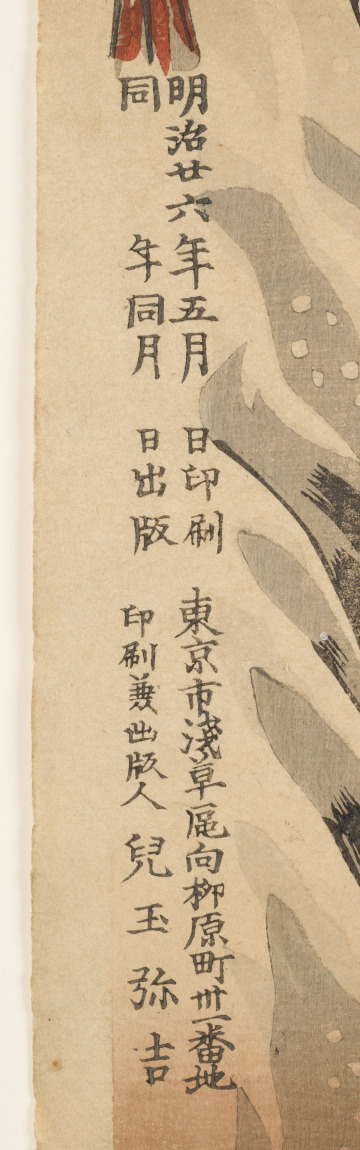 明治廿六年五月 日印刷 東京市浅草區向柳原町卅一番地
同 年同月 日出版 印刷兼出版人 兒玉弥吉